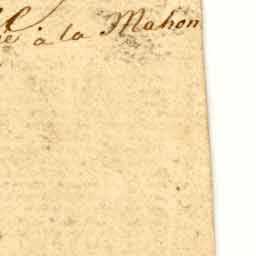 à la Mahon